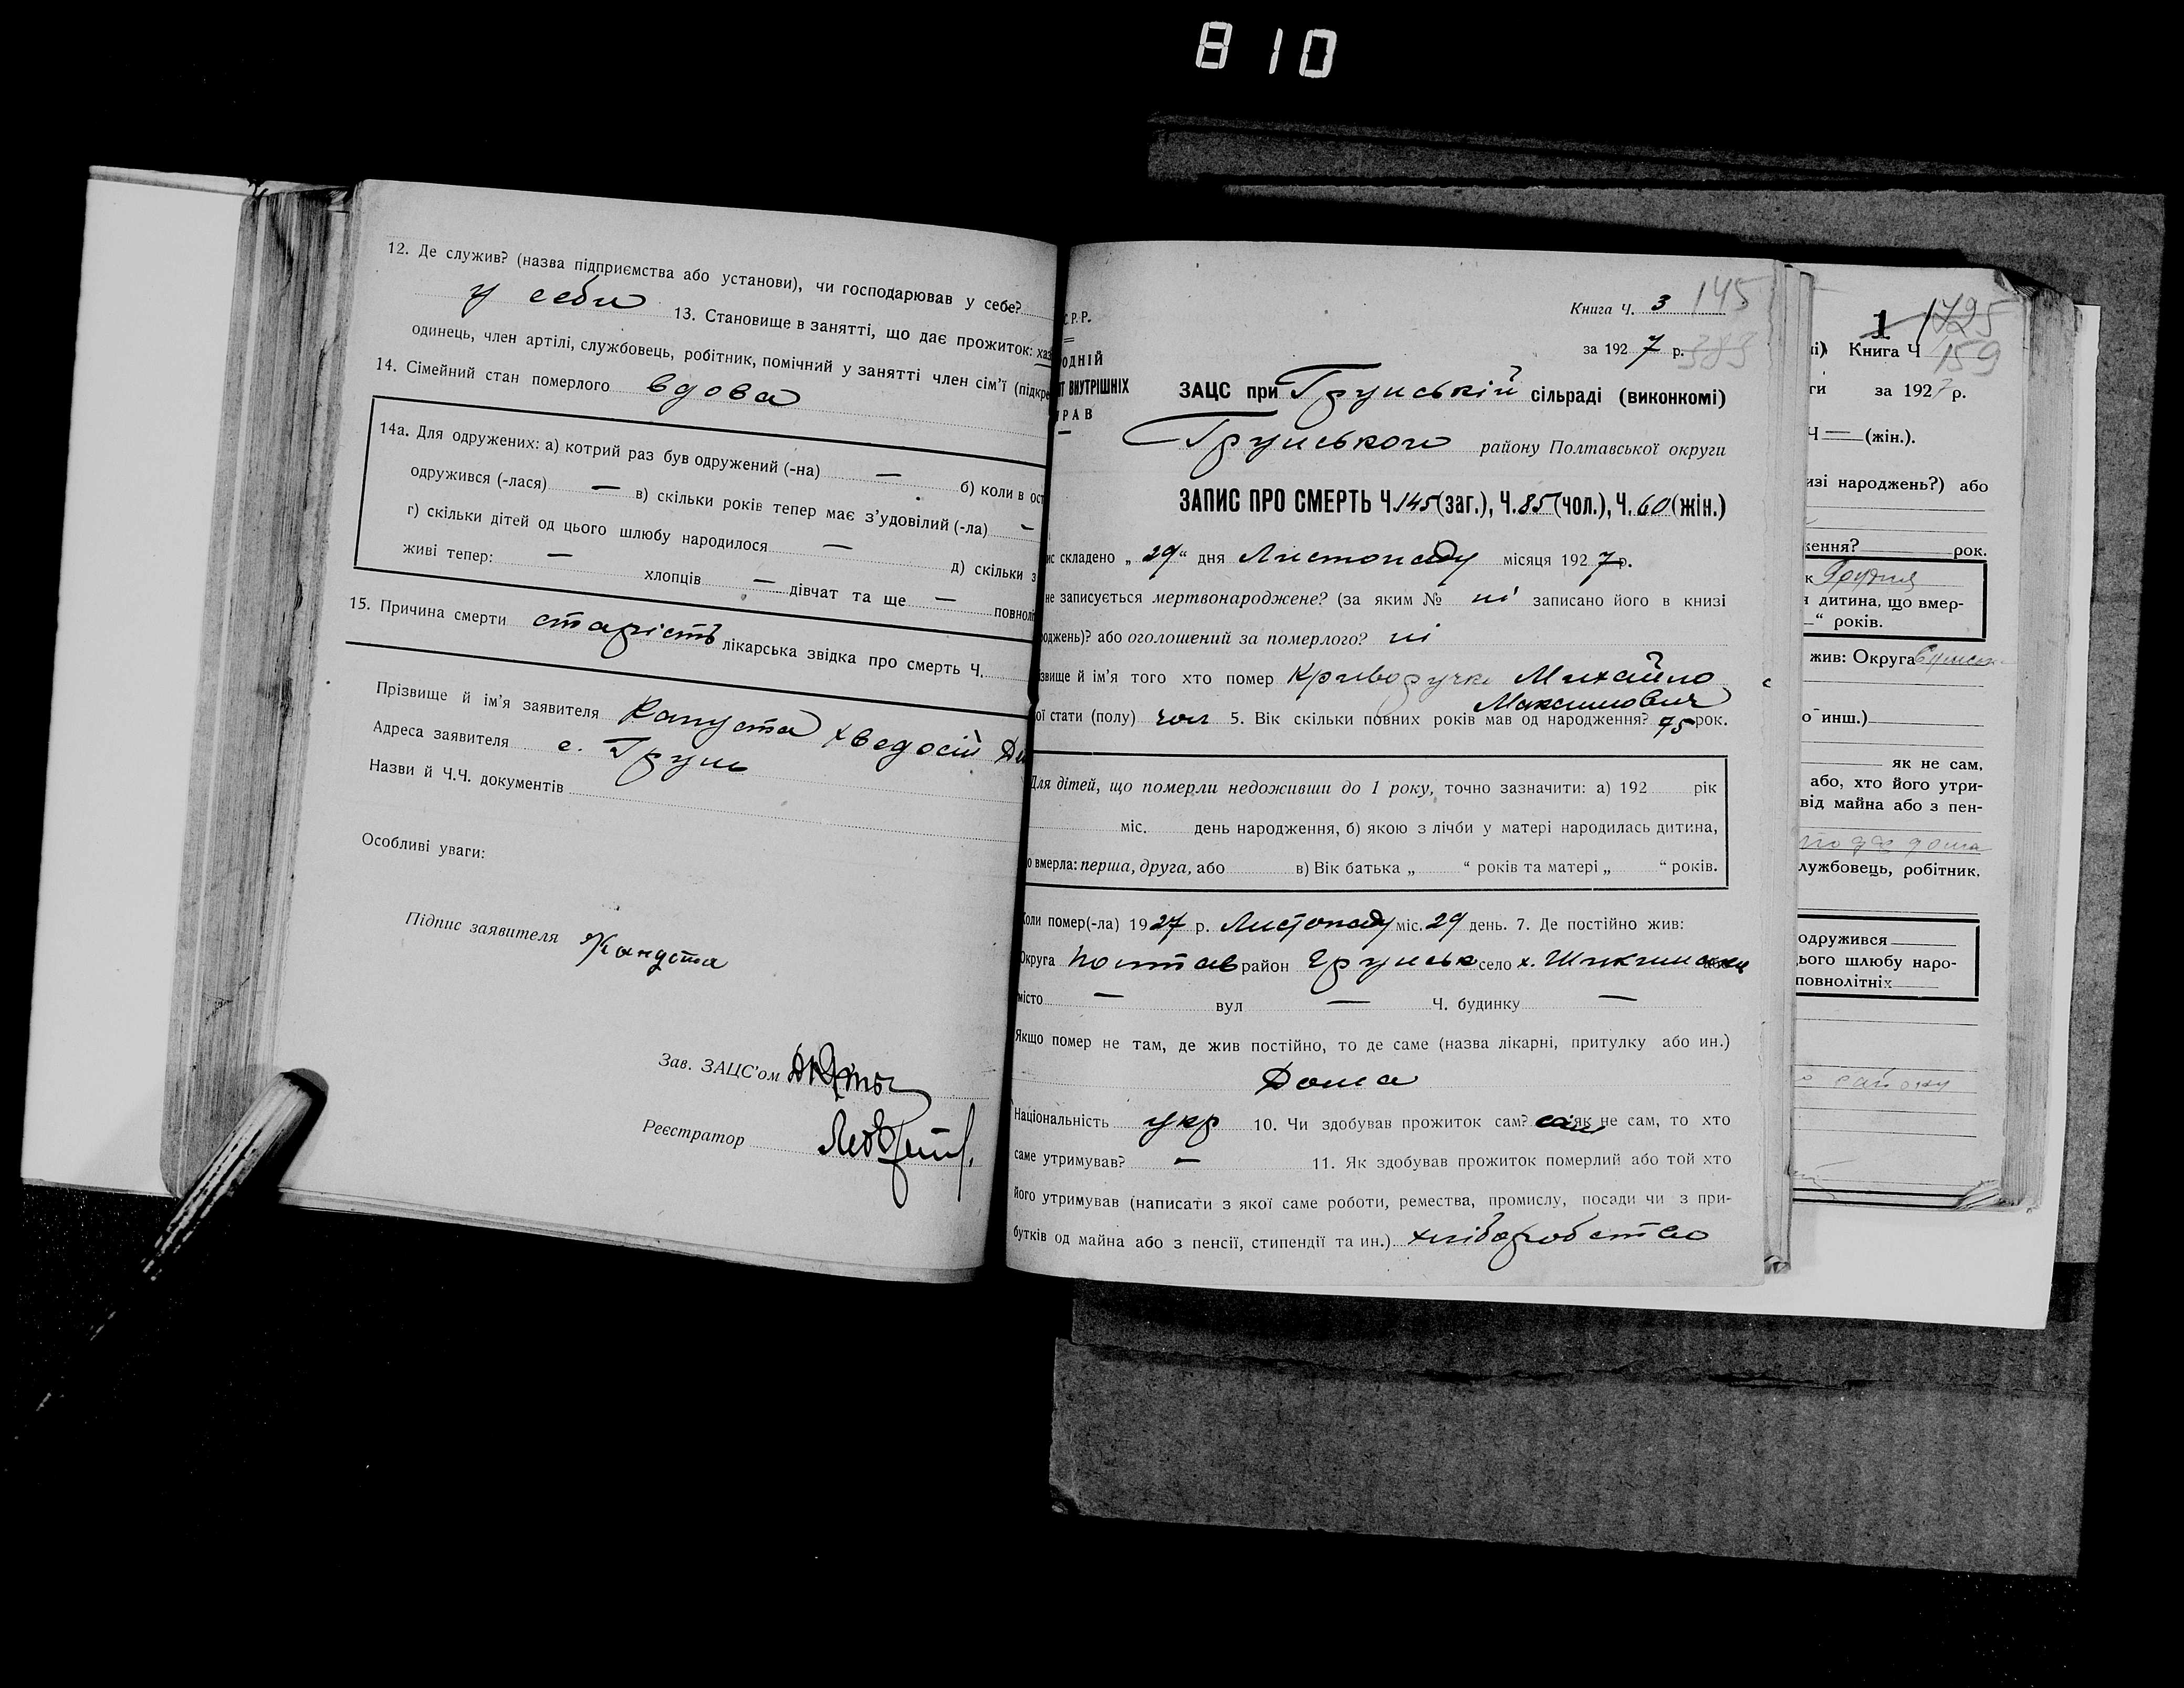 810
12. Де служив? (назва підприємства або установи), чи господарював у себе?
у себи 13. Становище в занятті, що дає прожиток: хаз
одинець, член артілі, службовець, робітник, помічний у занятті член сім’ї (підкре
14. Сімейний стан померлого вдова
14а. Для одружених: а) котрий раз був одружений (-на) — б) коли в ост
одружився (-лася) — в) скільки років тепер має з’удовілий (-ла) —
г) скільки дітей од цього шлюбу народилося — д) скільки з
живі тепер: — хлопців — дівчат та ще — повнолі
15. Причина смерти старість лікарська звідка про смерть Ч.
Прізвище й ім’я заявителя Капуста Хведосій
Адреса заявителя с. Грунь
Назви й Ч.Ч. документів
Особливі уваги:
Підпис заявителя Капуста
Зав. ЗАЦС’ом
Реєстратор
Книга Ч. 3 145
за 1927 р. 383
С.Р.Р.
ОДНІЙ
Т ВНУТРІШНІХ
РАВ
ЗАЦС при Грунській сільраді (виконкомі)
Грунського району Полтавської округи
ЗАПИС ПРО СМЕРТЬ Ч. 145 (заг.), Ч. 85 (чол.), Ч. 60 (жін.)
ис складено „29“ дня Листопаду місяця 1927 р.
не записується мертвонароджене? (за яким № ні записано його в книзі
оджень)? або оголошений за померлого? ні
звище й ім’я того хто помер Криворучко Михайло
Максимович
ої стати (полу) чол 5. Вік скільки повних років мав од народження? 75 рок.
Для дітей, що померли недоживши до 1 року, точно зазначити: а) 192 рік
міс. день народження, б) якою з лічби у матері народилась дитина,
о вмерла: перша, друга, або в) Вік батька „ “ років та матері „ “ років.
Коли помер(-ла) 1927 р. Листопаду міс. 29 день. 7. Де постійно жив:
Округа Полтав район Грунськ село х.
місто — вул — Ч. будинку —
Якщо помер не там, де жив постійно, то де саме (назва лікарні, притулку або ин.)
Дома
Національність укр 10. Чи здобував прожиток сам? сам як не сам, то хто
саме утримував? — 11. Як здобував прожиток померлий або той хто
його утримував (написати з якої саме роботи, ремества, промислу, посади чи з при-
бутків од майна або з пенсії, стипендії та ин.) хліборобство
1
і) Книга Ч 159
ги за 1927 р.
Ч — (жін.).
изі народжень?) або
ження? рок.
к Грудня
дитина, що вмер-
—“ років.
жив: Округа
о инш.)
як не сам,
або, хто його утри-
від майна або з пен-
лужбовець, робітник,
одружився
ього шлюбу наро-
повнолітніх